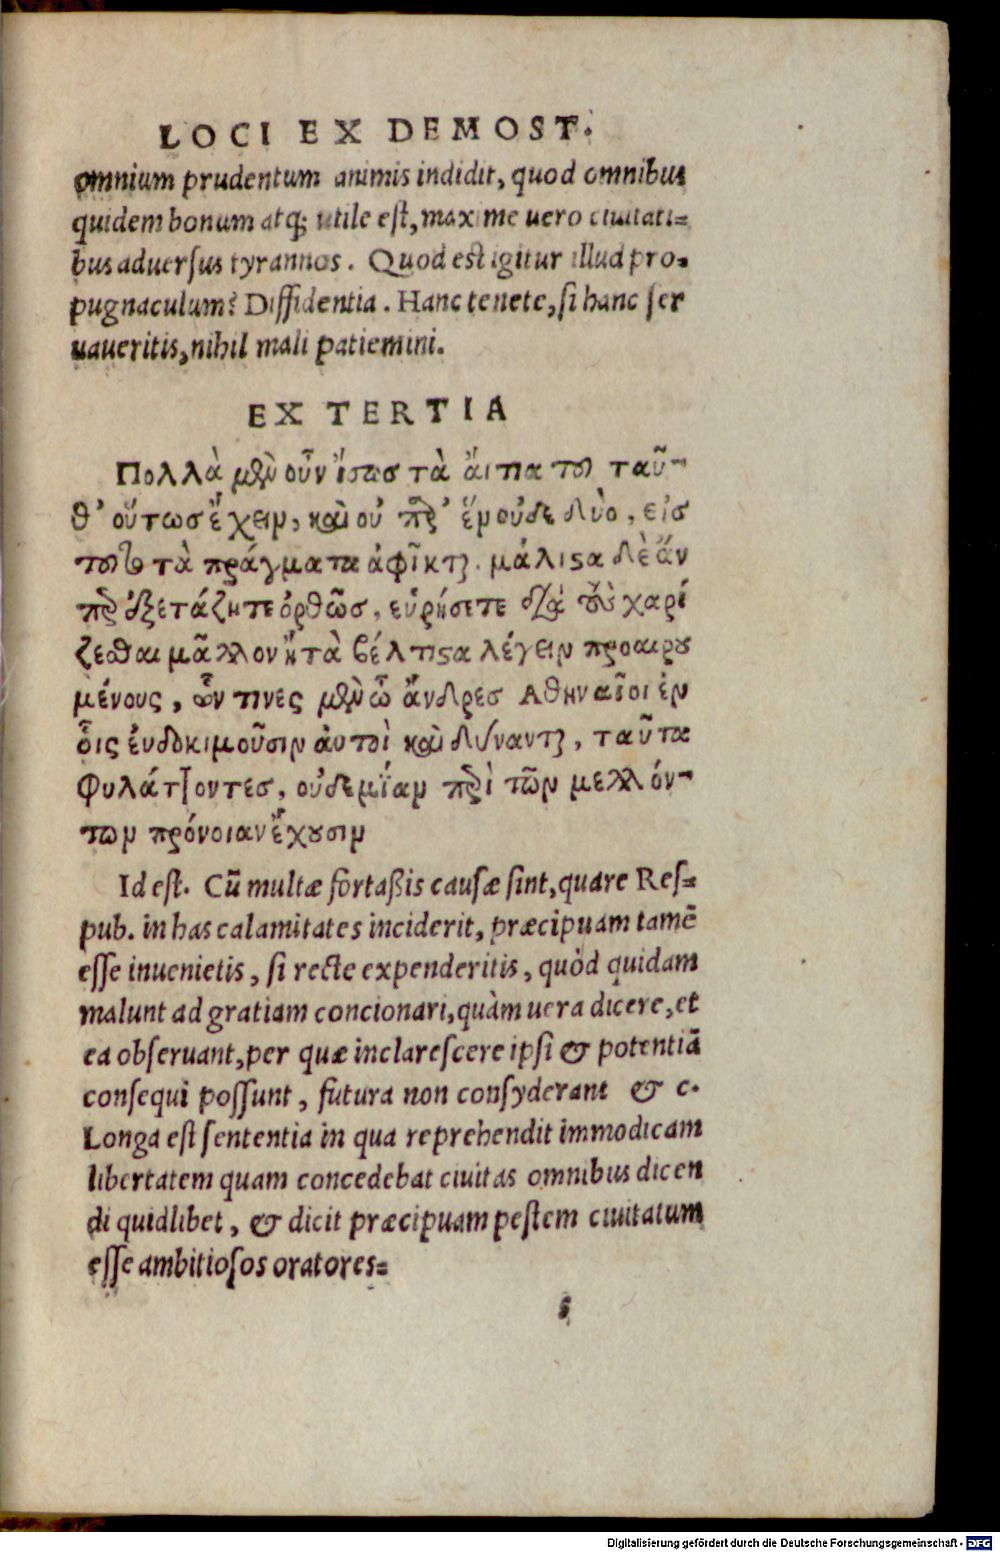 LOCI EX DEMOST.
omnium prudentum animis indidit, quod omnibus
quidem bonum atq; utile est, maxime uero ciuitati=
bus aduersus tyrannos. Quod est igitur illud pro=
pugnaculum? Diffidentia. Hanc tenete, si hanc ser
uaueritis, nihil mali patiemini.
EX TERTIA
Πολλὰ μὲν οὖν ἴσως τὰ ἄιτια τοῦ ταῦ-
θ’ οὕτωσ ἔχειν, καὶ οὐ παρ’ ἕν οὐδὲ δύο, εἰσ
τοῦτο τὰ πράγματα ἀφῖκται. μάλιστα δὲ ἄν
περ ἐξετάζητε ὀρθῶσ, εὑρήσετε διὰ τοὺσ χαρί
ζεσθαι μᾶλλον ἢ τὰ βέλτιστα λέγειν προαιρου
μένους, ὧν τινες μὲν ὦ ἄνδρεσ Αθηναῖοι ἐν
οἷς ἐυδοκιμοῦσιν ἀυτοὶ καὶ δύνανται, ταῦτα
Φυλάττοντεσ, οὐδεμίαν περὶ τῶν μελλόν-
των πρόνοιαν ἔχουσιν
Id est. Cū multæ fortaßis causæ sint, quare Res=
pub. in has calamitates inciderit, præcipuam tamē
esse inuenietis, si recte expenderitis, quòd quidam
malunt ad gratiam concionari, quàm uera dicere, et
ea obseruant, per quæ inclarescere ipsi & potentiā
consequi possunt, futura non consyderant & c.
Longa est sententia in qua reprehendit immodicam
libertatem quam concedebat ciuitas omnibus dicen
di quidlibet, & dicit præcipuam pestem ciuitatum
esse ambitiosos oratores=
s
Digitalisierung gefördert durch die Deutsche Forschungsgemeinschaft - DFG